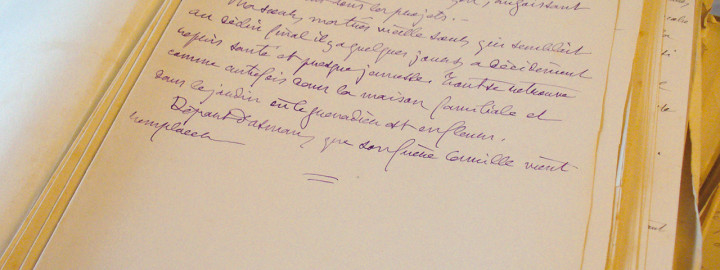 tous les projets. —
Ma soeur, ma très vieille soeur, qui semblait
au déclin final il y a quelques jours, a décidément
repris santé et presque jeunesse. Tout se retrouve
comme autrefois dans la maison familiale et
dans le jardin où le grenadier est en fleurs.
Départ d'Osman, que son frère Camille vient
remplacer